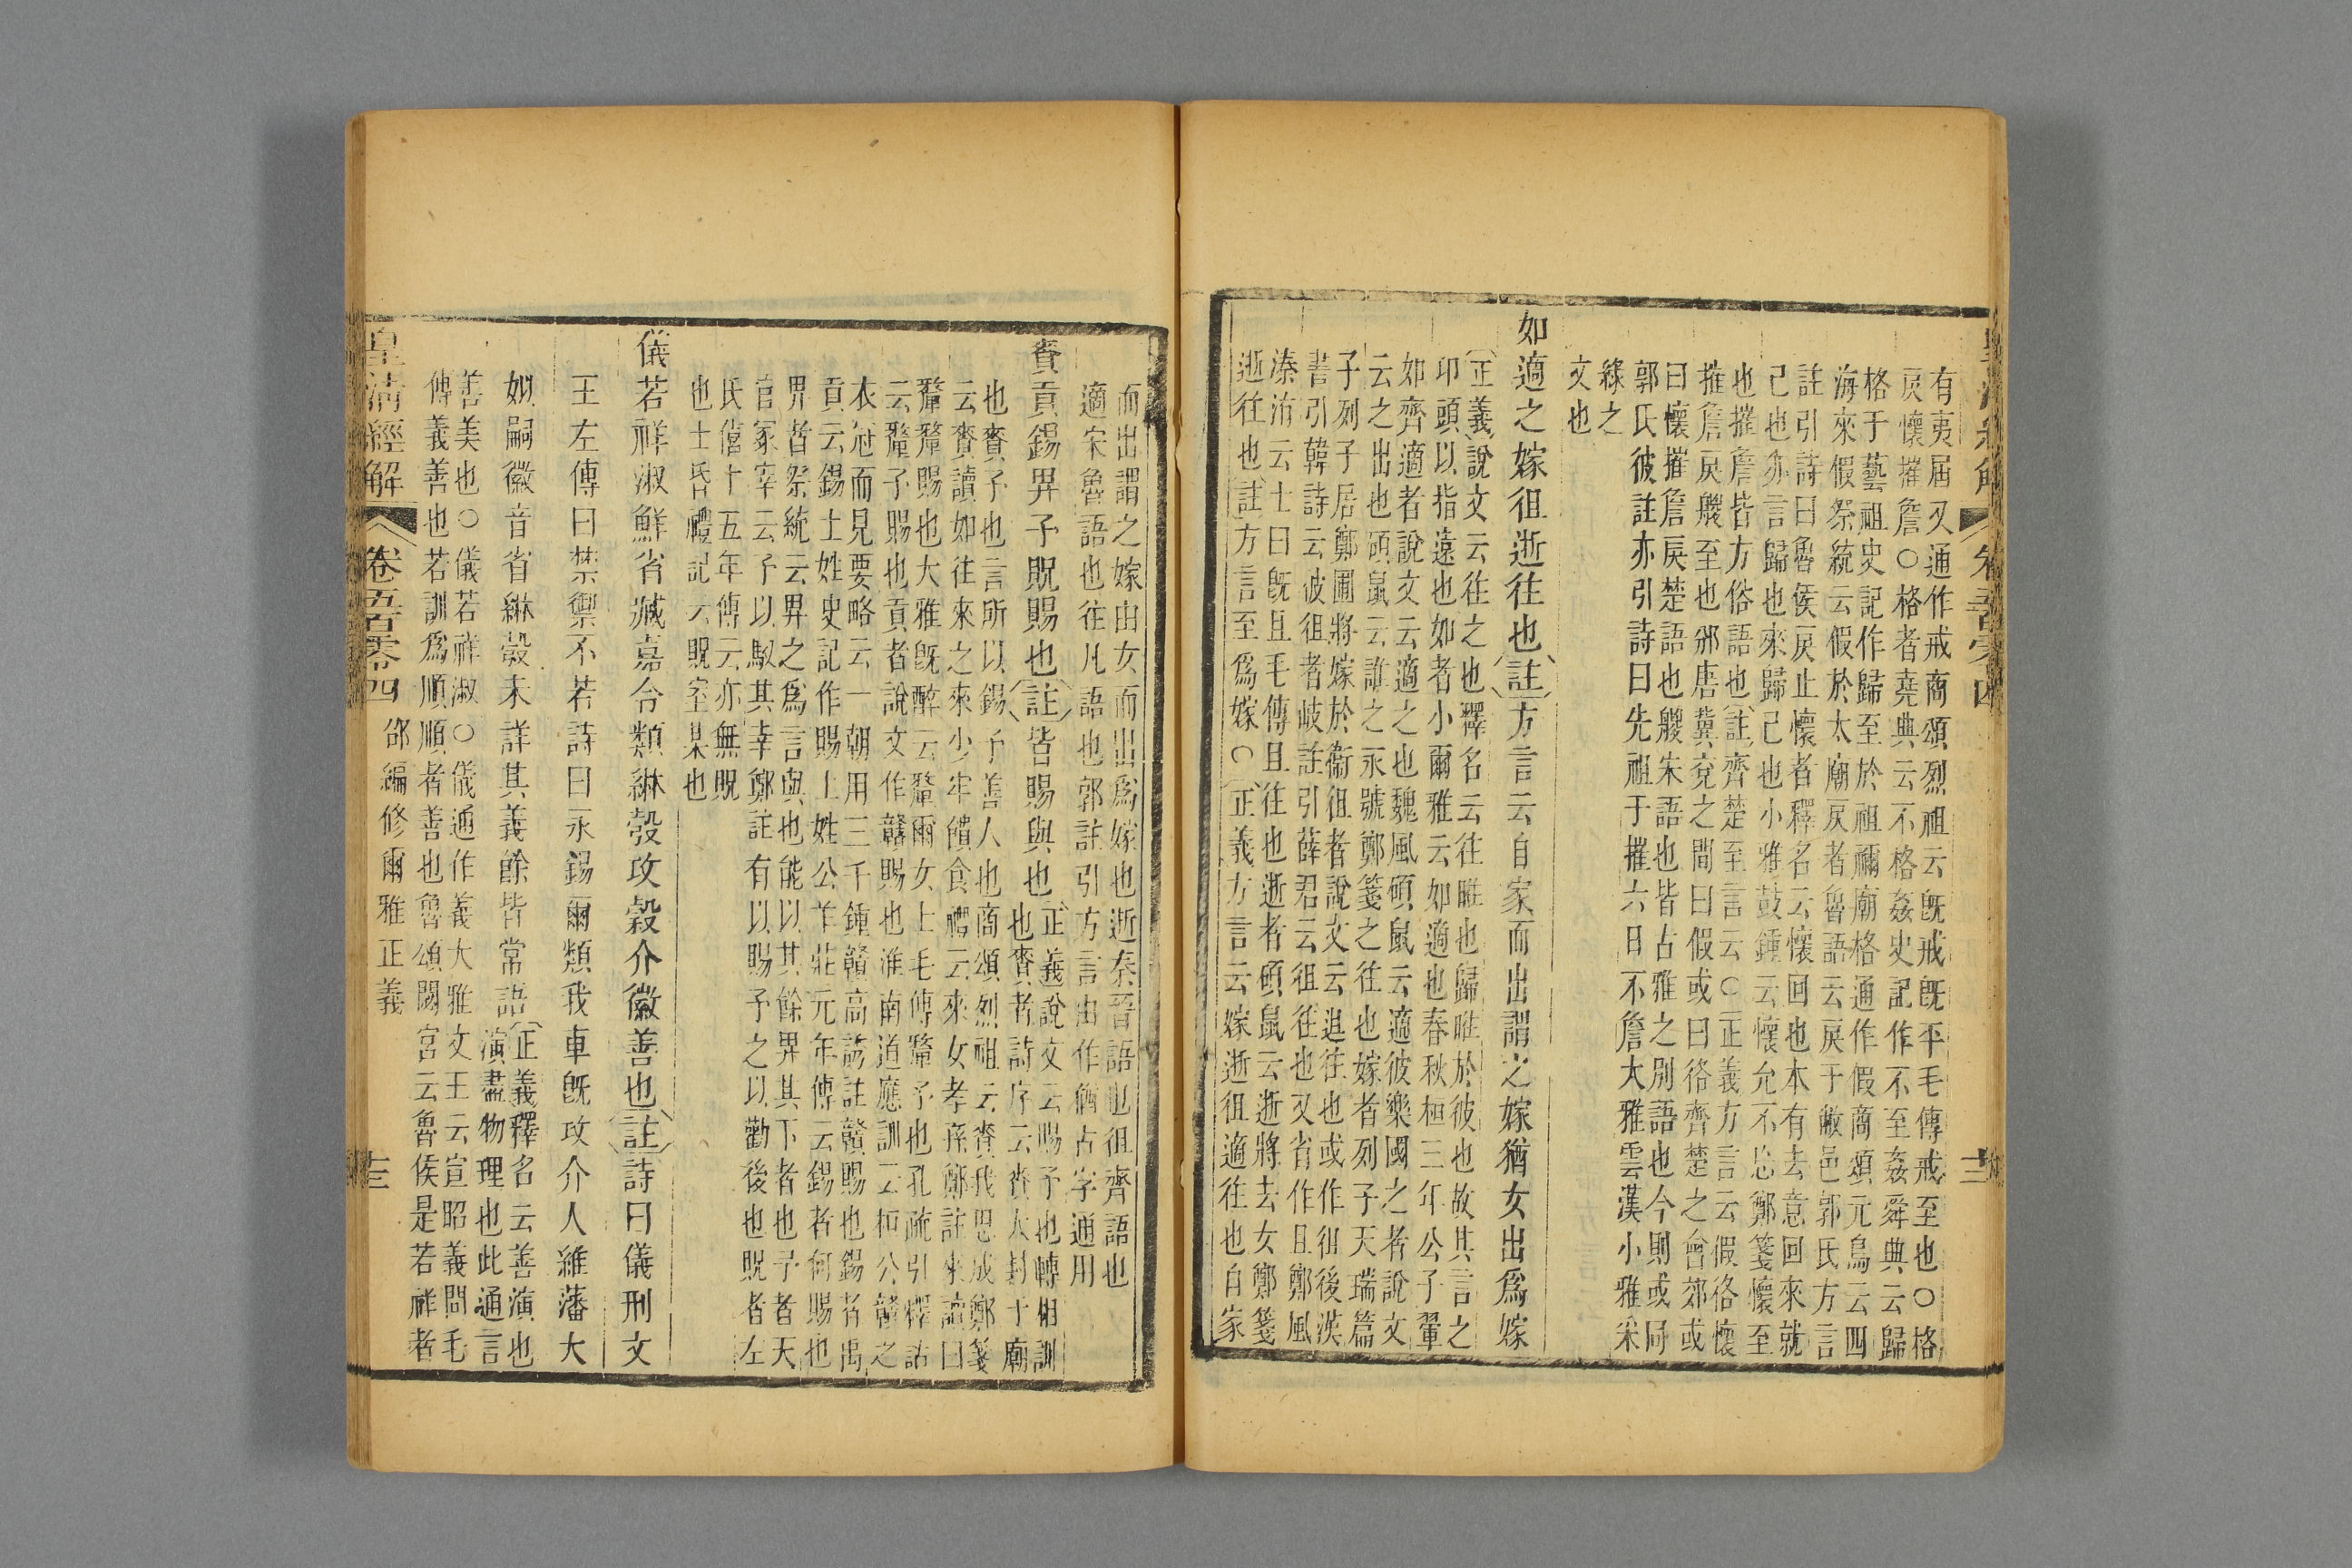 有夷屆又通作戒商頌烈祖云旣戒旣平毛傳戒至也○格
戾懷摧詹○格者堯典云不格姦史記作不至姦舜典云歸
格于藝祖史記作歸至於祖禰廟格通作假商頌元鳥云四
海來假祭統云假於太廟戾者魯語云戾于敝邑郭氏方言
註引詩曰魯侯戾止懷者釋名云懷回也本有去意回來就
己也亦言歸也來歸己也小雅鼓鍾云懷允不忘鄭箋懷至
也摧詹皆方俗語也註齊楚至言云○正義方言云假佫懷
摧詹戾艐至也邠唐冀兗之間曰假或曰佫齊楚之會郊或
曰懷摧詹戾楚語也艐朱語也皆古雅之別語也今則或同
郭氏彼註亦引詩曰先祖于摧六日不詹大雅雲漢小雅采
綠之
文也
如適之嫁徂逝往也註方言云自家而出謂之嫁猶女出爲嫁
正義說文云往之也釋名云往暀也歸暀於彼也故其言之
卬頭以指遠也如者小爾雅云如適也春秋桓三年公子翬
如齊適者說文云適之也魏風碩鼠云適彼樂國之者說文
云之出也碩鼠云誰之永號鄭箋之往也嫁者列子天瑞篇
子列子居鄭圃將嫁於衞徂者說文云𨑩往也或作徂後漢
書引韓詩云彼徂者岐註引薛君云徂往也又省作且鄭風
溱洧云士曰旣且毛傳且往也逝者碩鼠云逝將去女鄭箋
逝往也註方言至爲嫁○正義方言云嫁逝徂適往也自家
而出謂之嫁由女而出爲嫁也逝秦晉語也徂齊語也
適宋魯語也往凡語也郭註引方言由作猶古字通用
賚貢錫畀予貺賜也註皆賜與也正義說文云賜予也轉相訓
也賚者詩序云賚大封于廟
也賚予也言所以錫予善人也商頌烈祖云賚我思成鄭箋
云賚讀如往來之來少牢饋食禮云來女孝孫鄭註來讀曰
釐釐賜也大雅旣醉云釐爾女士毛傳釐予也孔疏引釋詁
云釐予賜也貢者說文作贛賜也淮南道應訓云桓公贛之
衣冠而見要略云一朝用三千鍾贛高誘註贛賜也錫者禹
貢云錫土姓史記作賜土姓公羊莊元年傳云錫者何賜也
畀者祭統云畀之爲言與也能以其餘畀其下者也予者天
官冢宰云予以馭其幸鄭註有以賜予之以勸後也貺者左
氏僖十五年傳云亦無貺
也士昏禮記云貺室某也
儀若祥淑鮮省臧嘉令類綝彀攻穀介徽善也註詩曰儀刑文
王左傳曰禁禦不若詩曰永錫爾類我車旣攻介人維藩大
姒嗣徽音省綝彀未詳其義餘皆常語正義釋名云善演也
演盡物理也此通言
善美也○儀若祥淑○儀通作義大雅文王云宣昭義問毛
傳義善也若訓爲順順者善也魯頌閟宮云魯侯是若祥者
皇清經解 卷五百零四 邵編修爾雅正義 十三